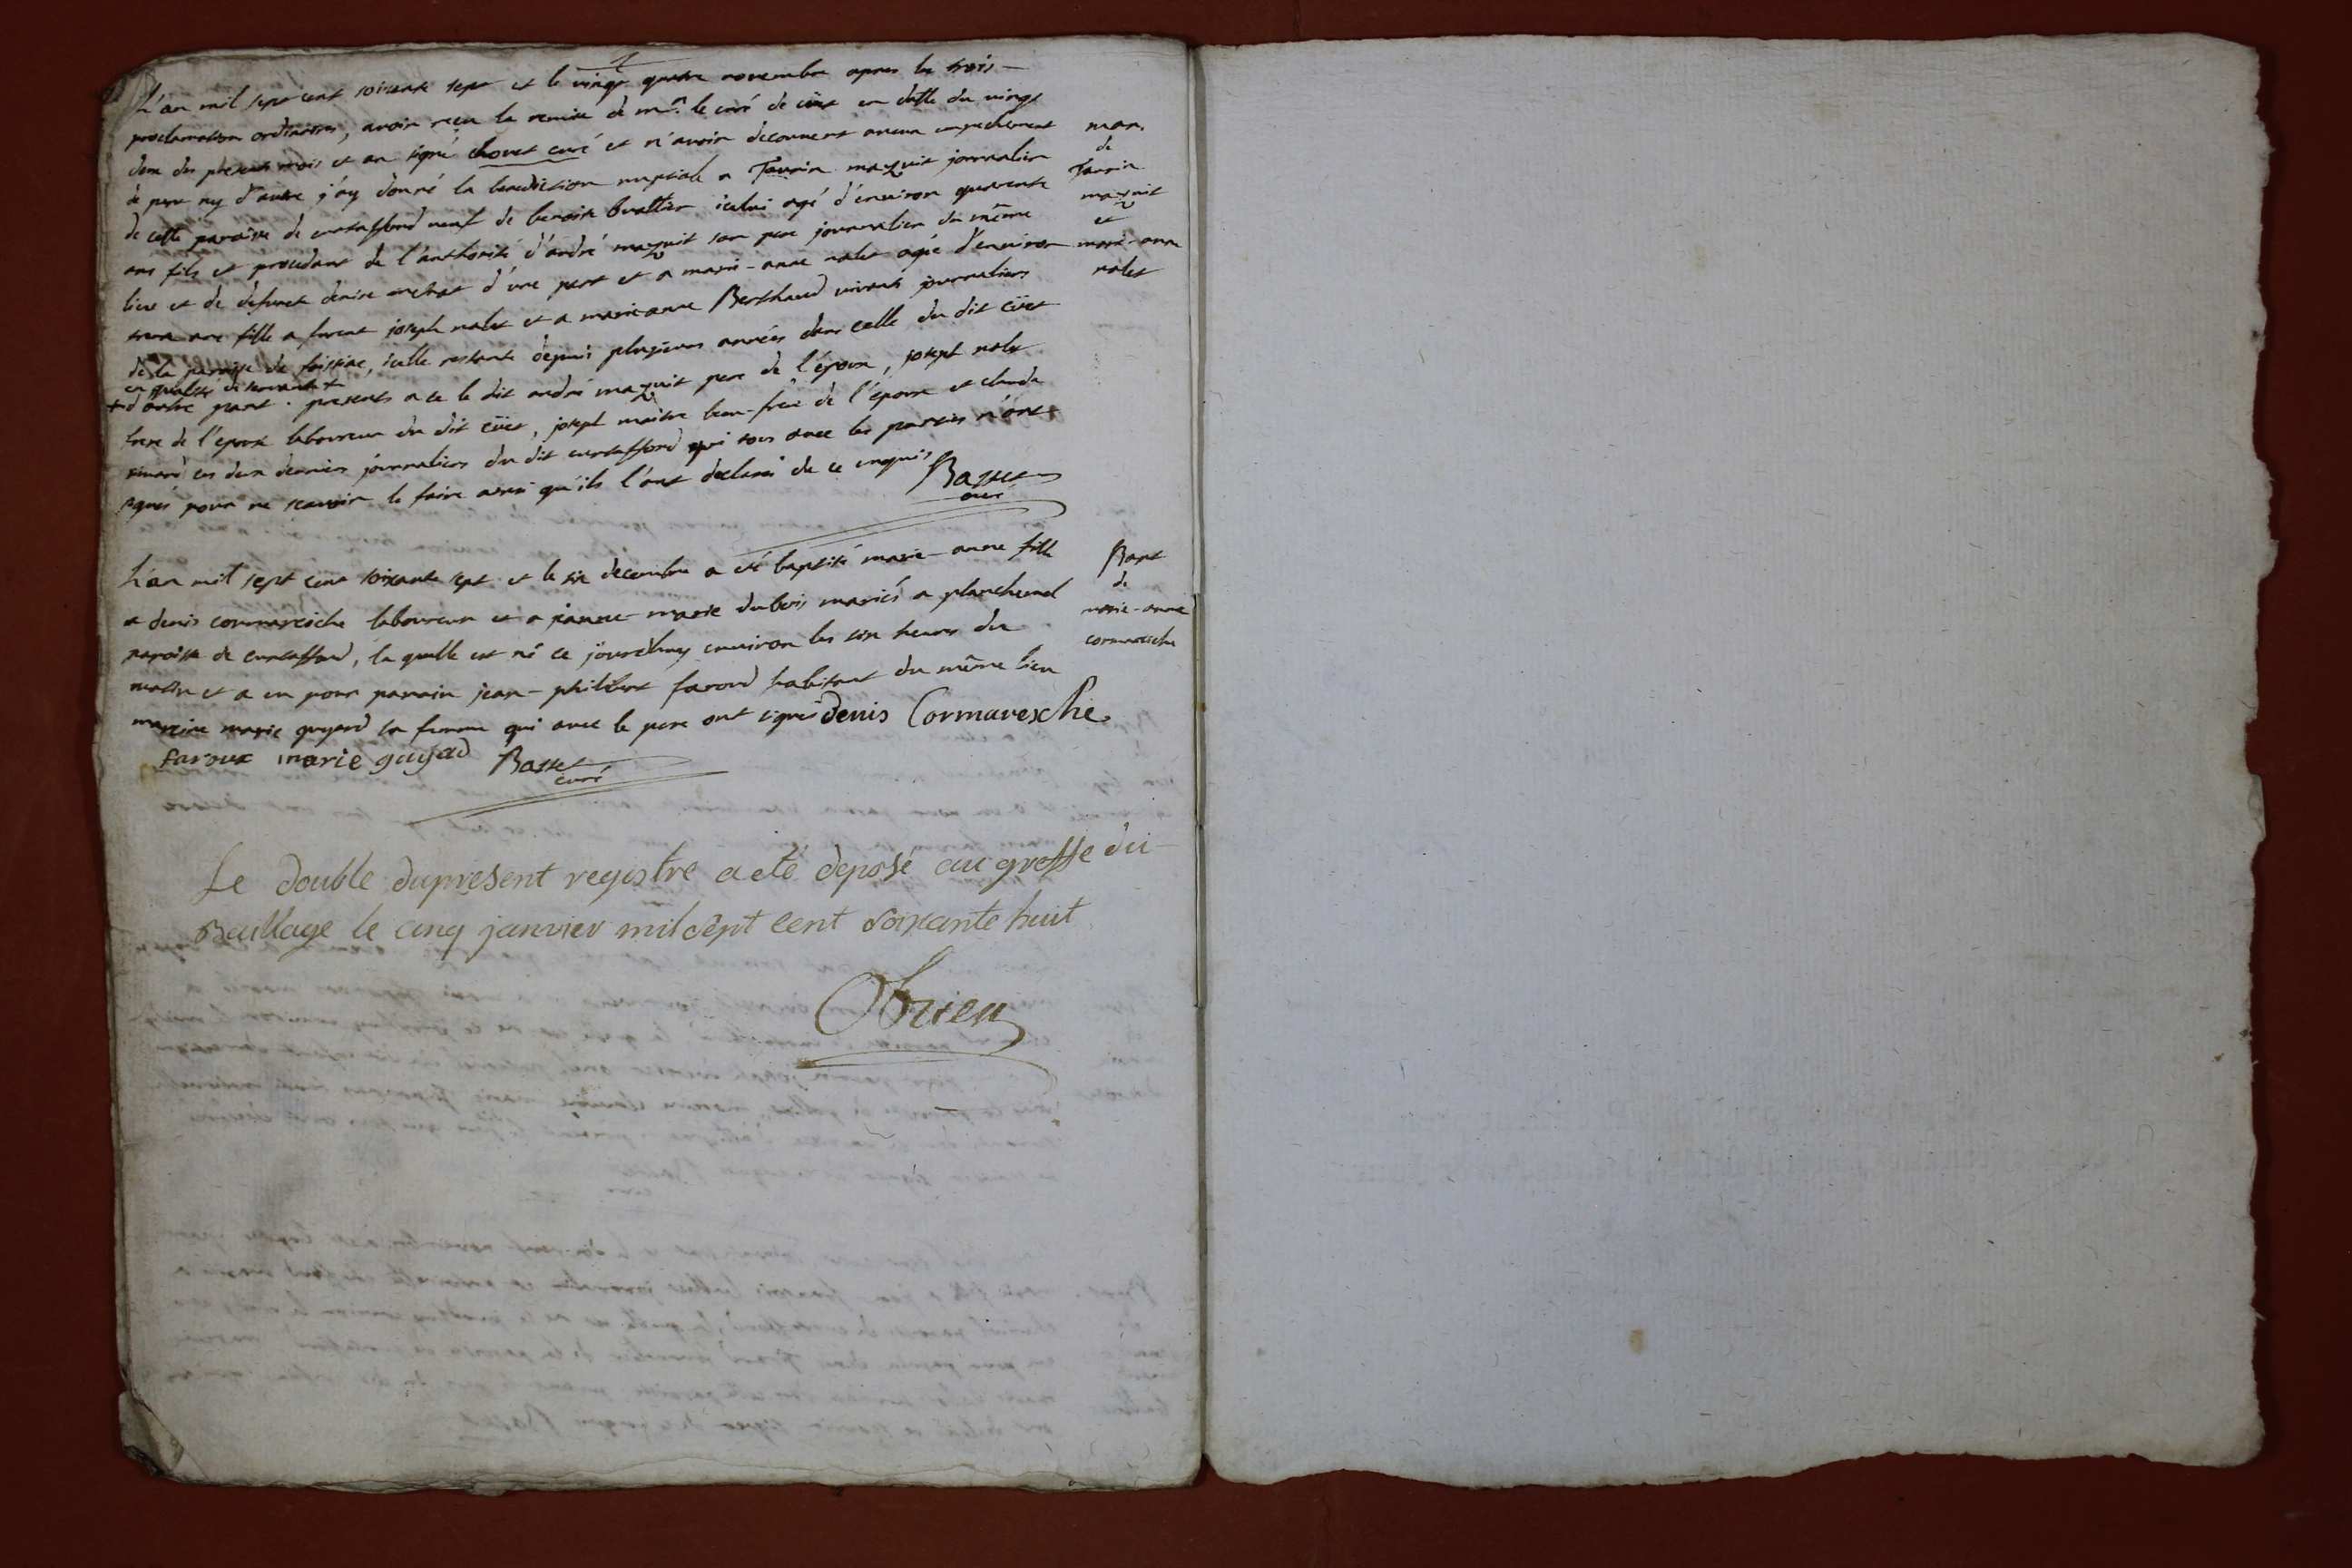 L'an mil sept cent soixante sept et le vingt quatre novembre apres les trois
proclamations ordinaires, avoir reçu la remise de mr. le curé de cüet en datte du vingt
deux du present mois et an signé chovet curé et n'avoir decouvert aucun empechement
de part ny d'autre j'ay donné la benediction nuptiale a Taurin mazuit journalier
de cette paroisse de curtaffond veuf de benoite buattier icelui agé d'environ quarante
ans fils et procedant de l'authorité d'andré mazuit son pere journalier du même
lieu et de defunct denise d'une part et a marie-anne nalet agée d'environ
ans fille a furent joseph nalet et a marie anne Berthaud vivants journaliers
de la paroisse de foissiac, icelle restante depuis plusieurs années dans celle du dit cüet
en qualité de servante +
+ d'autre part. presents a ce le dit andré mazuit pere de l'epoux, joseph nalet
frere de l'epouse laboureur du dit cüet, joseph maitre beau-frere de l'epoux et claude
ces deux derniers journaliers du dit curtaffond qui tous avec les parties n'ont
signés pour ne scavoir le faire ainsi qu'ils l'ont declaré de ce enquis Basset
curé
mar.
de
Taurin
mazuit
et
marie-anne
nalet
L'an mil sept cent soixante sept et le six decembre a eté baptisé marie-anne fille
a denis cormareiche laboureur et a jeanne-marie dubois mariés a planchemel
paroisse de curtaffond, la quelle est né ce jourdhuy environ les six heures du
matin et a eu pour parrain jean-philibert faroud habitant du même lieu
marreine marie guyard sa femme qui avec le pere ont signés denis Cormaresche
faroux marie guyad Basset
curé
Bapt
de
marie-anne
cormareiche
Le double du present registre a eté deposé au greffe du
Baillage le cinq janvier mil sept cent soixante huit